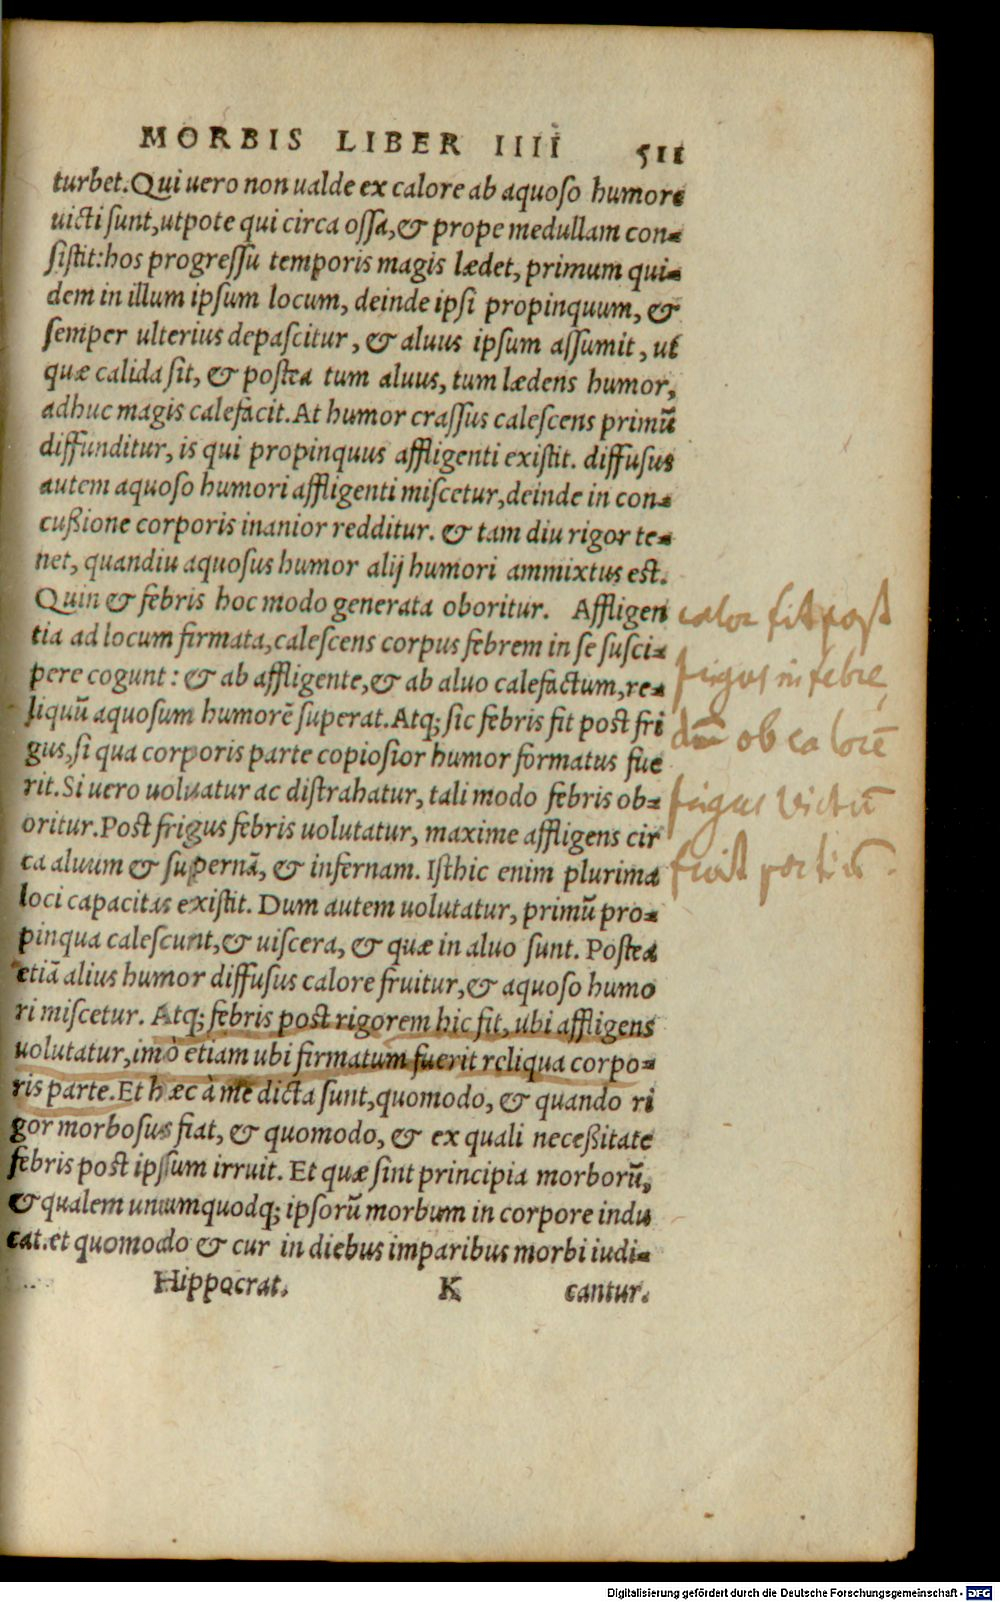 MORBIS LIBER IIII 511
turbet. Qui uero non ualde ex calore ab aquoso humore
uicti sunt, utpote qui circa ossa, & prope medullam con-
sistit: hos progressu temporis magis lædet, primum qui-
dem in illum ipsum locum, deinde ipsi propinquum, &
semper ulterius depascitur, & aluus ipsum assumit, ut
quæ calida sit, & postea tum aluus, tum lædens humor,
adhuc magis calefacit. At humor crassus calescens primũ
diffunditur, is qui propinquus affligenti existit. diffusus
autem aquoso humori affligenti miscetur, deinde in con-
cußione corporis inanior redditur. & tam diu rigor te-
net, quandiu aquosus humor alij humori ammixtus est.
Quin & febris hoc modo generata oboritur. Affligen
tia ad locum firmata, calescens corpus febrem in se susci-
pere cogunt: & ab affligente, & ab aluo calefactum, re-
liquũ aquosum humorẽ superat. Atq; sic febris fit post fri
gus, si qua corporis parte copiosior humor formatus fue
rit. Si uero uoluatur ac distrahatur, tali modo febris ob-
oritur. Post frigus febris uolutatur, maxime affligens cir
ca aluum & supernã, & infernam. Isthic enim plurima
loci capacitas existit. Dum autem uolutatur, primũ pro-
pinqua calescunt, & uiscera, & quæ in aluo sunt. Postea
etiã alius humor diffusus calore fruitur, & aquoso humo
ri miscetur. Atq; febris post rigorem hic fit, ubi affligens
uolutatur, imò etiam ubi firmatum fuerit reliqua corpo-
ris parte. Et hæc à me dicta sunt, quomodo, & quando ri
gor morbosus fiat, & quomodo, & ex quali neceßitate
febris post ipsum irruit. Et quæ sint principia morborũ,
& qualem unumquodq; ipsorũ morbum in corpore indu
cat. et quomodo & cur in diebus imparibus morbi iudi-
Hippocrat. K cantur.
calor fit post
frigus in febre
ob calorẽ
frigus victũ
Digitalisierung gefördert durch die Deutsche Forschungsgemeinschaft - DFG